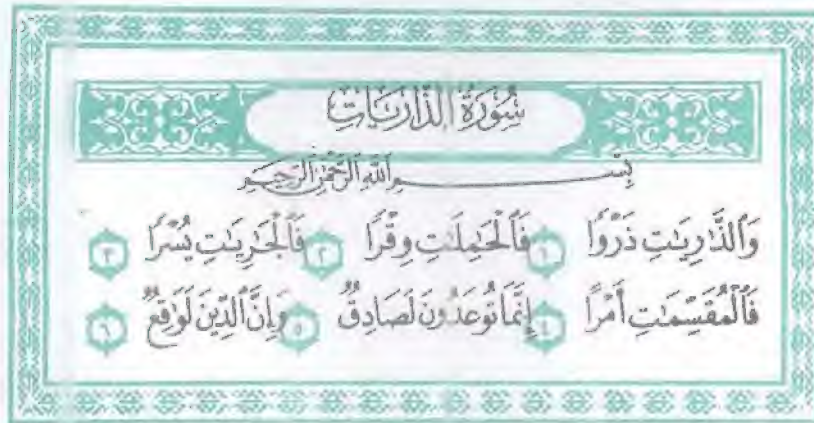 سُورَةُ الذَّارِيَاتِ
بِسْمِ اللَّهِ الرَّحْمَٰنِ الرَّحِيمِ
وَٱلذَّٰرِيَٰتِ ذَرْوًا ١ فَٱلْحَٰمِلَٰتِ وِقْرًا ٢ فَٱلْجَٰرِيَٰتِ يُسْرًا ٣
فَٱلْمُقَسِّمَٰتِ أَمْرًا ٤ إِنَّمَا تُوعَدُونَ لَصَادِقٌ ٥ وَإِنَّ ٱلدِّينَ لَوَٰقِعٌ ٦